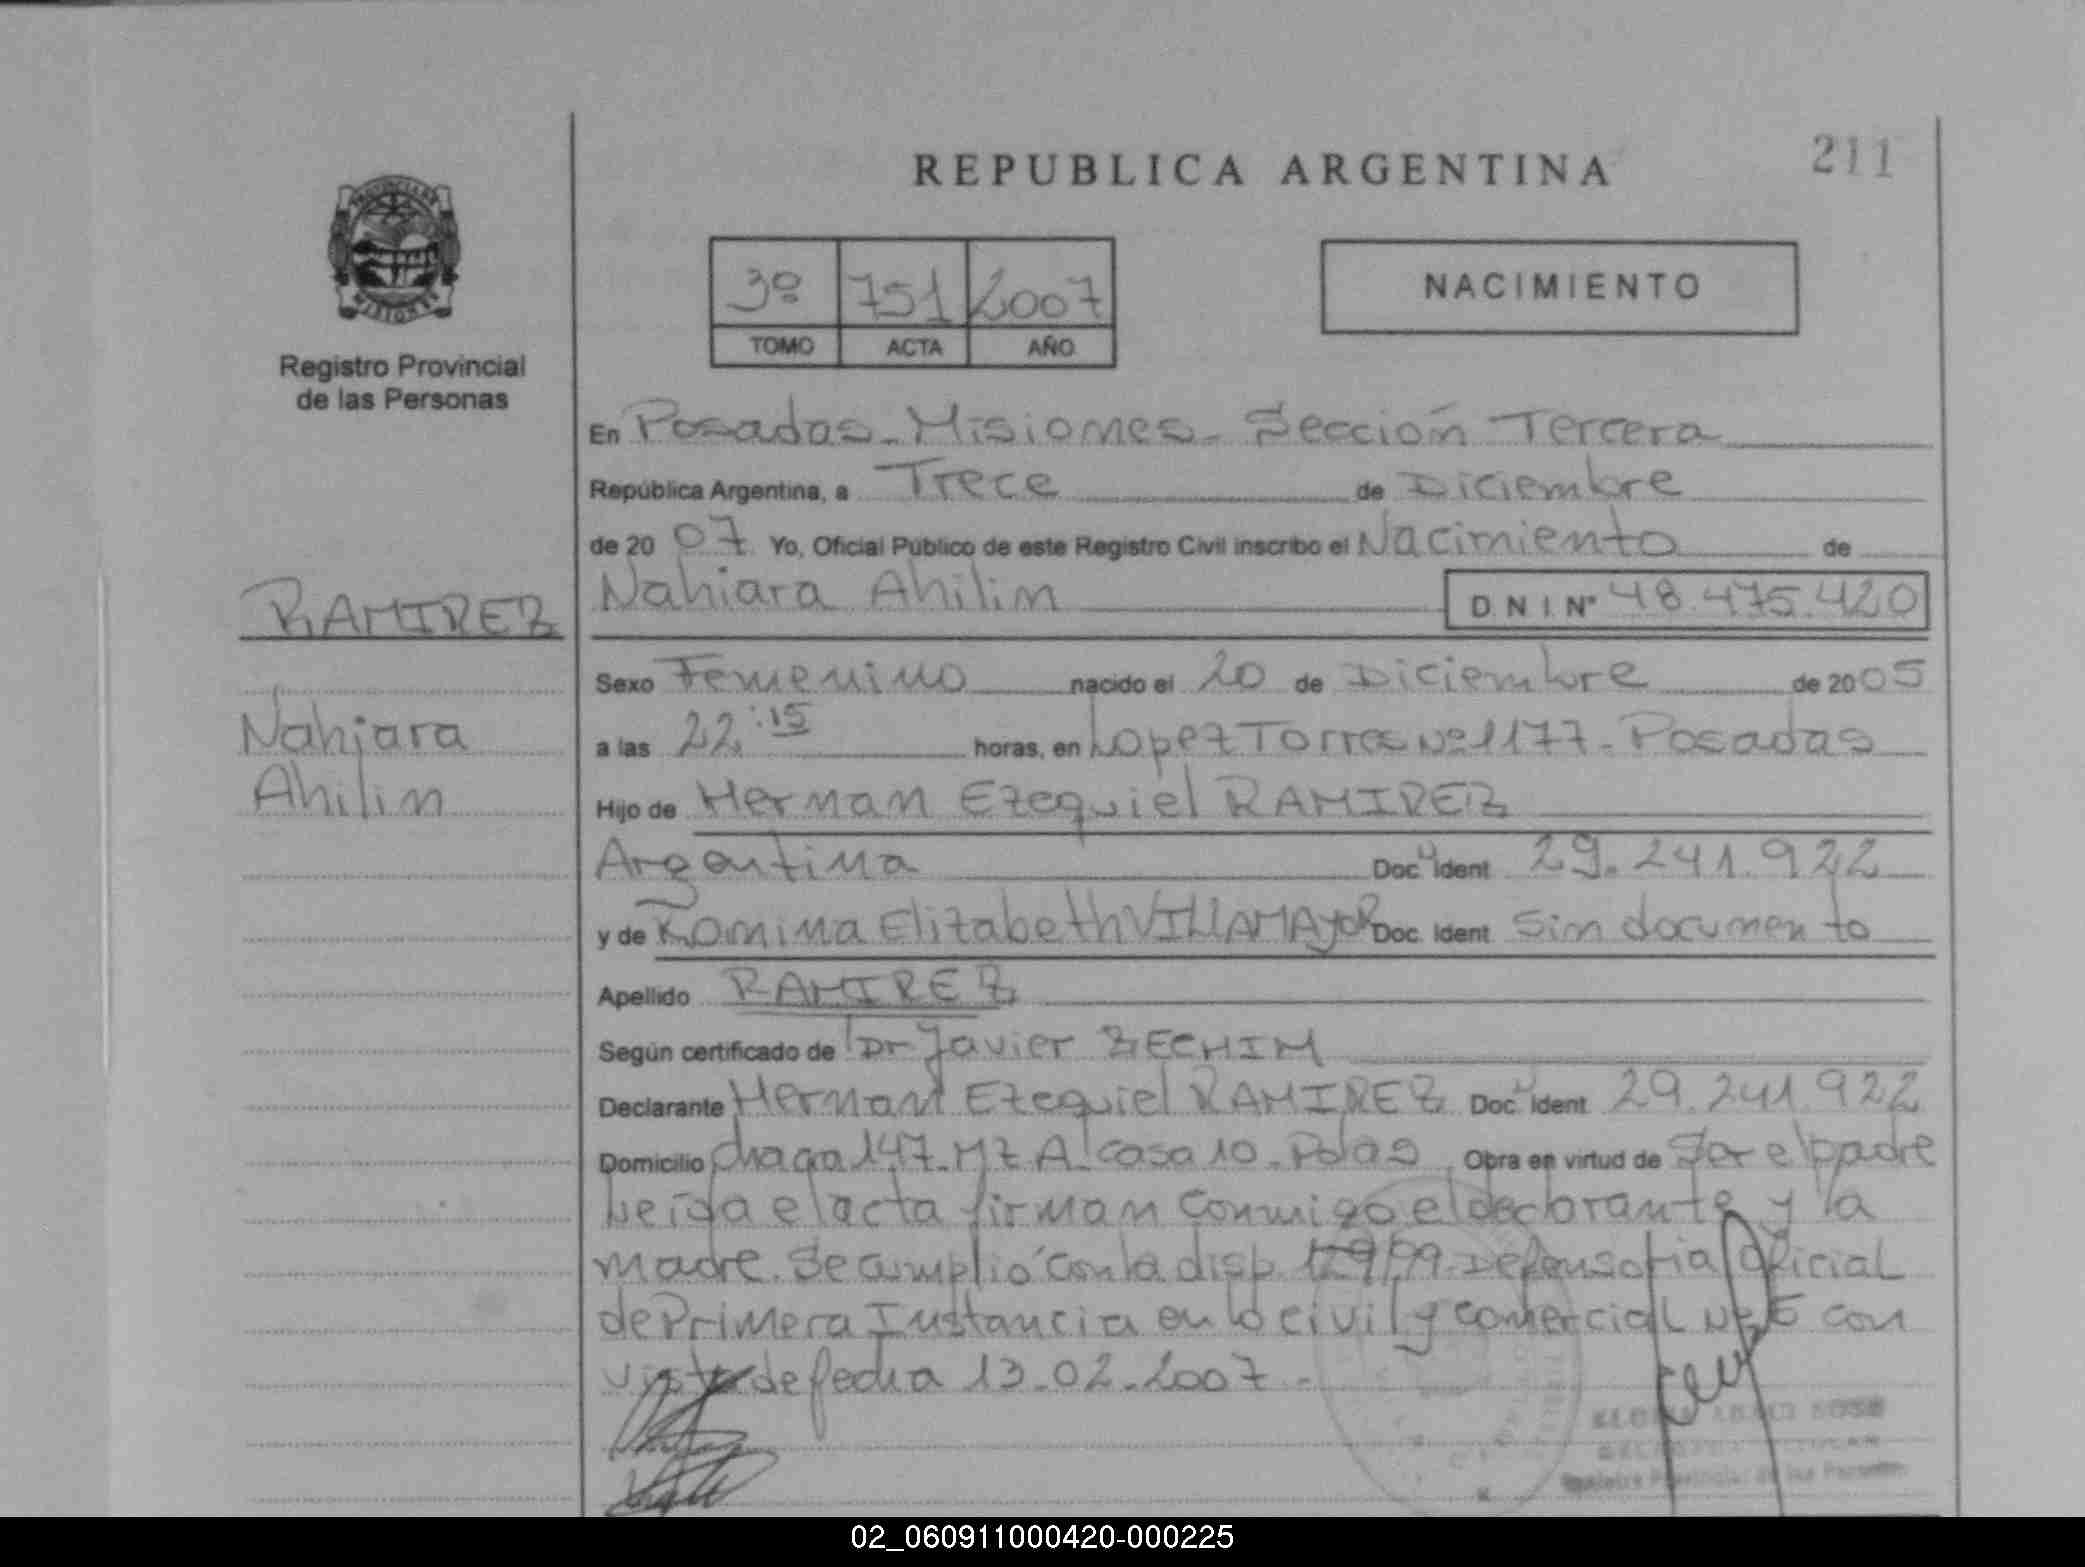 REPUBLICA ARGENTINA
211
PROVINCIA DE
MISIONES
Registro Provincial
de las Personas
3º 751 2007
TOMO ACTA AÑO
NACIMIENTO
En Posadas - Misiones - Sección Tercera
República Argentina, a Trece de Diciembre
de 20 07 Yo, Oficial Público de este Registro Civil inscribo el Nacimiento de
RAMIREZ
Nahiara
Ahilin
Nahiara Ahilin D N I Nº 48.475.420
Sexo Femenino nacido el 20 de Diciembre de 20 05
a las 22:15 horas, en Lopez Torres Nº 1177 - Posadas
Hijo de Hernan Ezequiel RAMIREZ
Argentina Doc U Ident 29.241.922
y de Romina Elizabeth VILLAMAYOR Doc. Ident Sin documento
Apellido RAMIREZ
Según certificado de Dr Javier ZECHIM
Declarante Hernan Ezequiel RAMIREZ Doc U Ident 29.241.922
Domicilio chacra 147 - MZ A - casa 10 - Pdas Obra en virtud de Ser el padre
Leída el acta firman conmigo el declarante y la
madre. Se cumplió con la disp. /99 - Defensoria Oficial
de Primera Instancia en lo civil y comercial Nº 5 con
vista de fecha 13-02-2007 -
Registro Provincial de las Personas
02_060911000420-000225